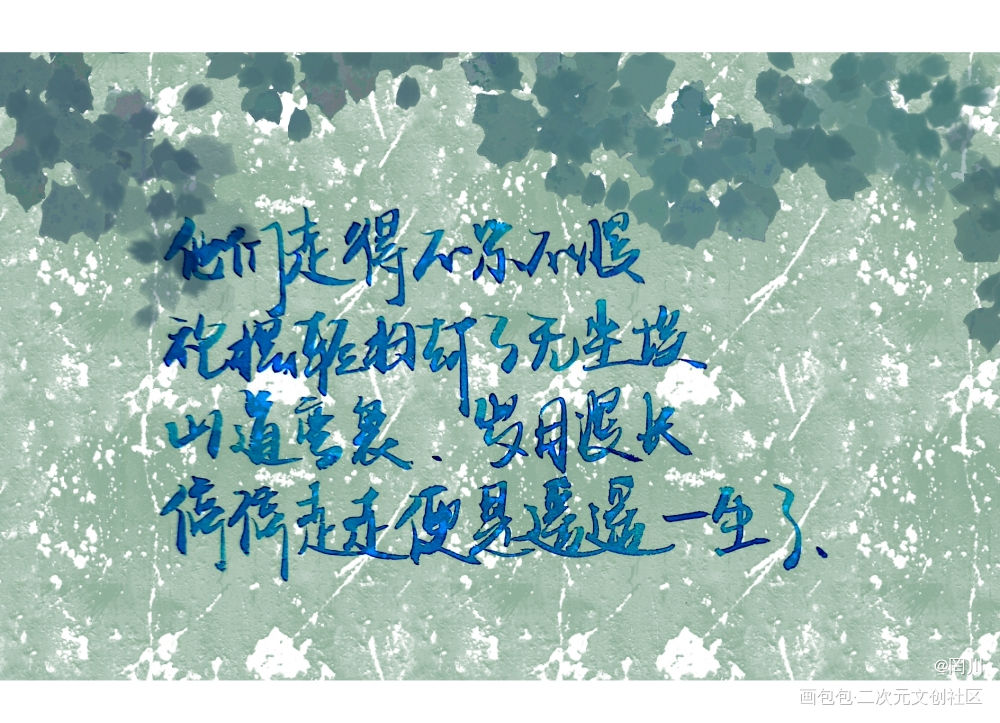 他们走得不紧不慢
袍摆轻扫却了无尘埃
山道弯长、岁月漫长
停停走走便是遥遥一生了、
@閇川
画包包·二次元文创社区